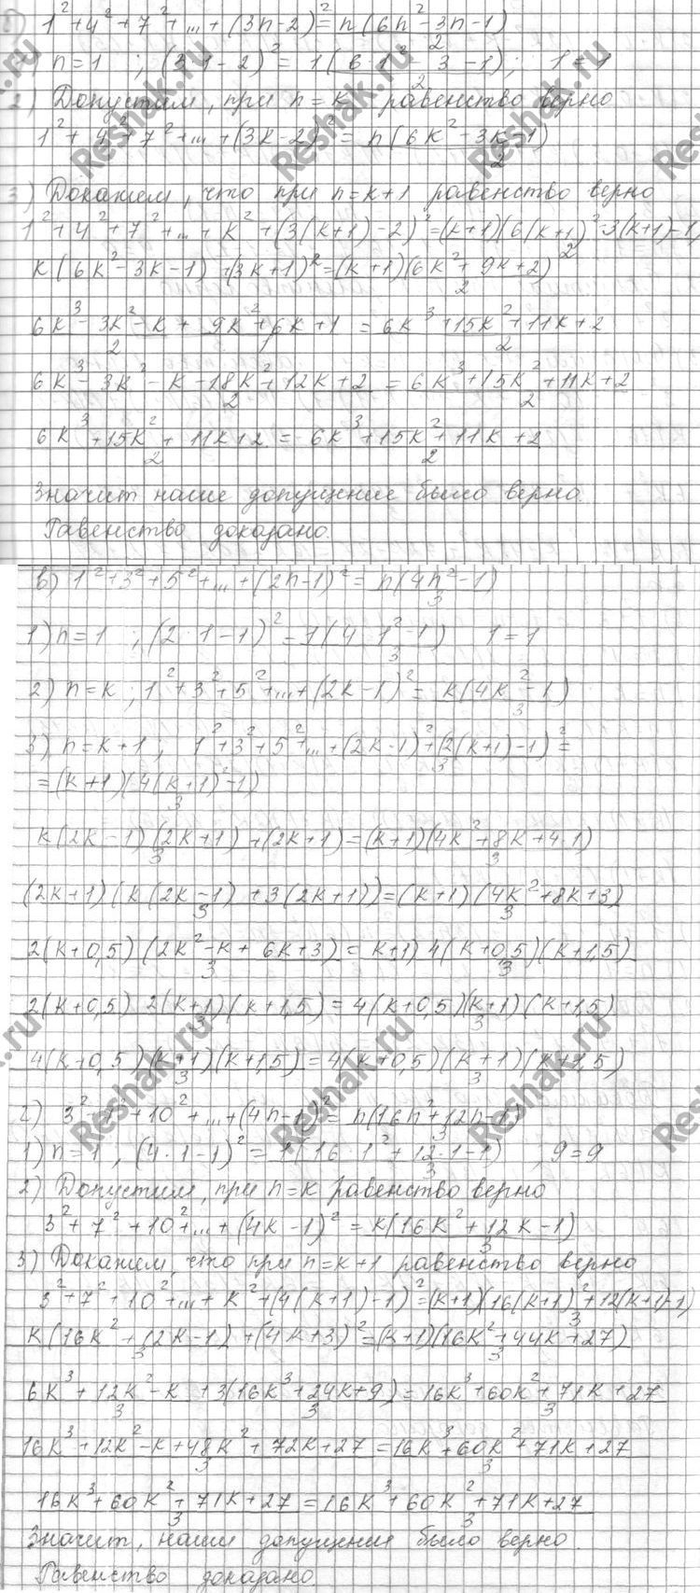 1²+4²+7²+...+(3n-2)²= n(6n²-3n-1)/2
n=1 ; (3·1-2)²= 1(6·1²-3-1)/2; 1=1
2) Допустим, при n=k равенство верно
1²+4²+7²+...+(3k-2)²= n(6k²-3k-1)/2
3) Докажем, что при n=k+1 равенство верно
1²+4²+7²+...+k²+(3(k+1)-2)²=(k+1)(6(k+1)²-3(k+1)-1)/2
k(6k²-3k-1)+(3k+1)²=(k+1)(6k²+9k+2)/2
6k³-3k²-k/2 + 9k²+6k+1 = 6k³+15k²+11k+2/2
6k³-3k²-k-18k²+12k+2/2 = 6k³+15k²+11k+2/2
6k³+15k²+11k+2/2 = 6k³+15k²+11k+2/2
Значит наше допущение было верно.
Равенство доказано.
в) 1²+3²+5²+...+(2n-1)²= n(4n²-1)/3
1) n=1 ; (2·1-1)²=1(4·1²-1)/3 1=1
2) n=k ; 1²+3²+5²+...+(2k-1)²= k(4k²-1)/3
3) n=k+1 ; 1²+3²+5²+...+(2k-1)²+(2(k+1)-1)²=
=(k+1)(4(k+1)²-1)/3
k(2k-1)(2k+1)/3+(2k+1)=(k+1)(4k²+8k+4-1)/3
(2k+1)(k(2k-1)+3(2k+1))/3=(k+1)(4k²+8k+3)/3
2(k+0,5)(2k²-k+6k+3)/3= k+1)4(k+0,5)(k+1,5)/3
2(k+0,5)2(k+1)(k+1,5)/3=4(k+0,5)(k+1)(k+1,5)/3
4(k+0,5)(k+1)(k+1,5)/3=4(k+0,5)(k+1)(k+1,5)/3
г) 3²+7²+10²+...+(4n-1)²= n(16n²+12n-1)/3
1) n=1 , (4·1-1)²= 1(16·1²+12·1-1)/3 ; 9=9
2) Допустим, при n=k равенство верно
3²+7²+10²+...+(4k-1)²=k(16k²+12k-1)/3
3) Докажем, что при n=k+1 равенство верно
3²+7²+10²+...+k²+(4(k+1)-1)²=(k+1)(16(k+1)²+12(k+1)-1)/3
k(16k²+12k-1)/3+(4k+3)²=(k+1)(16k²+44k+27)/3
6k³+12k²-k/3+3(16k³+24k+9)/3=16k³+60k²+71k+27/3
16k³+12k²-k+48k²+72k+27/3=16k³+60k²+71k+27/3
16k³+60k²+71k+27/3=16k³+60k²+71k+27/3
Значит, наше допущение было верно.
Равенство доказано.
Reshak.ru